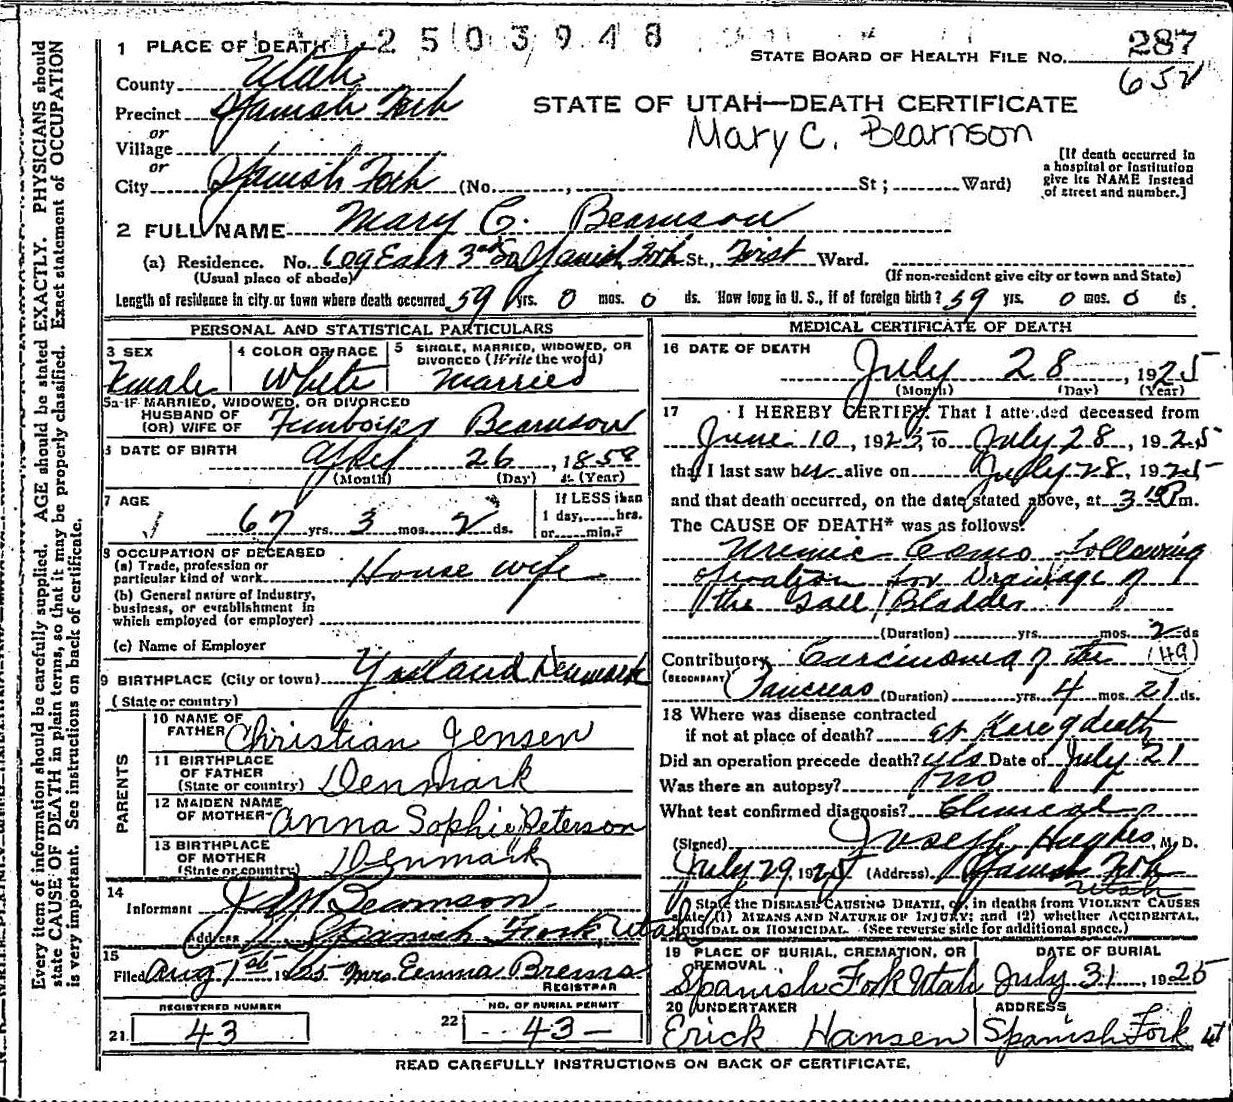 2503948
STATE BOARD OF HEALTH FILE NO. 287
652
1 PLACE OF DEATH
County Utah
Precinct Spanish Fork
or
Village
or
City Spanish Fork (No. , St ; Ward)
STATE OF UTAH—DEATH CERTIFICATE
Mary C. Bearnson
[If death occurred in
a hospital or institution
give its NAME instead
of street and number.]
2 FULL NAME Mary C. Bearnson
(a) Residence. No. 609 East 3rd So Spanish Fork St., First Ward.
(Usual place of abode) (If non-resident give city or town and State)
Length of residence in city or town where death occurred 59 yrs. 0 mos. 0 ds. How long in U. S., if of foreign birth? 59 yrs. 0 mos. 0 ds.
PERSONAL AND STATISTICAL PARTICULARS
3 SEX
Female
4 COLOR OR RACE
White
5 SINGLE, MARRIED, WIDOWED, OR
DIVORCED (Write the word)
Married
5a IF MARRIED, WIDOWED, OR DIVORCED
HUSBAND OF
(OR) WIFE OF Bearnson
DATE OF BIRTH
April 26, 1858
(Month) (Day) (Year)
7 AGE
67 yrs. 3 mos. 2 ds.
If LESS than
1 day, hrs.
or min.?
8 OCCUPATION OF DECEASED
(a) Trade, profession or
particular kind of work House wife
(b) General nature of Industry,
business, or establishment in
which employed (or employer)
(c) Name of Employer
9 BIRTHPLACE (City or town) Denmark
(State or country)
PARENTS
10 NAME OF
FATHER Christian Jensen
11 BIRTHPLACE
OF FATHER
(State or country) Denmark
12 MAIDEN NAME
OF MOTHER Anna Sophie Peterson
13 BIRTHPLACE
OF MOTHER
(State or country) Denmark
14
Informant Bearnson
Address Spanish Fork, Utah
15
Filed Aug 1st 1925 Mrs Emma Brems
REGISTRAR
REGISTERED NUMBER
21 43
NO. OF BURIAL PERMIT
22 43
MEDICAL CERTIFICATE OF DEATH
16 DATE OF DEATH
July 28, 1925
(Month) (Day) (Year)
17 I HEREBY CERTIFY, That I attended deceased from
June 10, 1925, to July 28, 1925
that I last saw her alive on July 28, 1925
and that death occurred, on the date stated above, at 3 P m.
The CAUSE OF DEATH* was as follows:
Uremic Coma following
operation for Drainage of
the Gall Bladder
(Duration) yrs. mos. 2 ds
Contributory Carcinoma of the (49)
(SECONDARY) Pancreas (Duration) yrs. 4 mos. 21 ds.
18 Where was disease contracted
if not at place of death? at place of death
Did an operation precede death? yes Date of July 21
Was there an autopsy? no
What test confirmed diagnosis? Clinical
(Signed) Joseph Hughes, M. D.
July 29, 1925 (Address) Spanish Fork
Utah
State the DISEASE CAUSING DEATH, or, in deaths from VIOLENT CAUSES
state (1) MEANS AND NATURE OF INJURY; and (2) whether ACCIDENTAL,
SUICIDAL OR HOMICIDAL. (See reverse side for additional space.)
19 PLACE OF BURIAL, CREMATION, OR
REMOVAL
Spanish Fork Utah
DATE OF BURIAL
July 31, 1925
20 UNDERTAKER
Erick Hansen
ADDRESS
Spanish Fork Ut
READ CAREFULLY INSTRUCTIONS ON BACK OF CERTIFICATE.
Every item of information should be carefully supplied. AGE should be stated EXACTLY. PHYSICIANS should
state CAUSE OF DEATH in plain terms, so that it may be properly classified. Exact statement of OCCUPATION
is very important. See instructions on back of certificate.